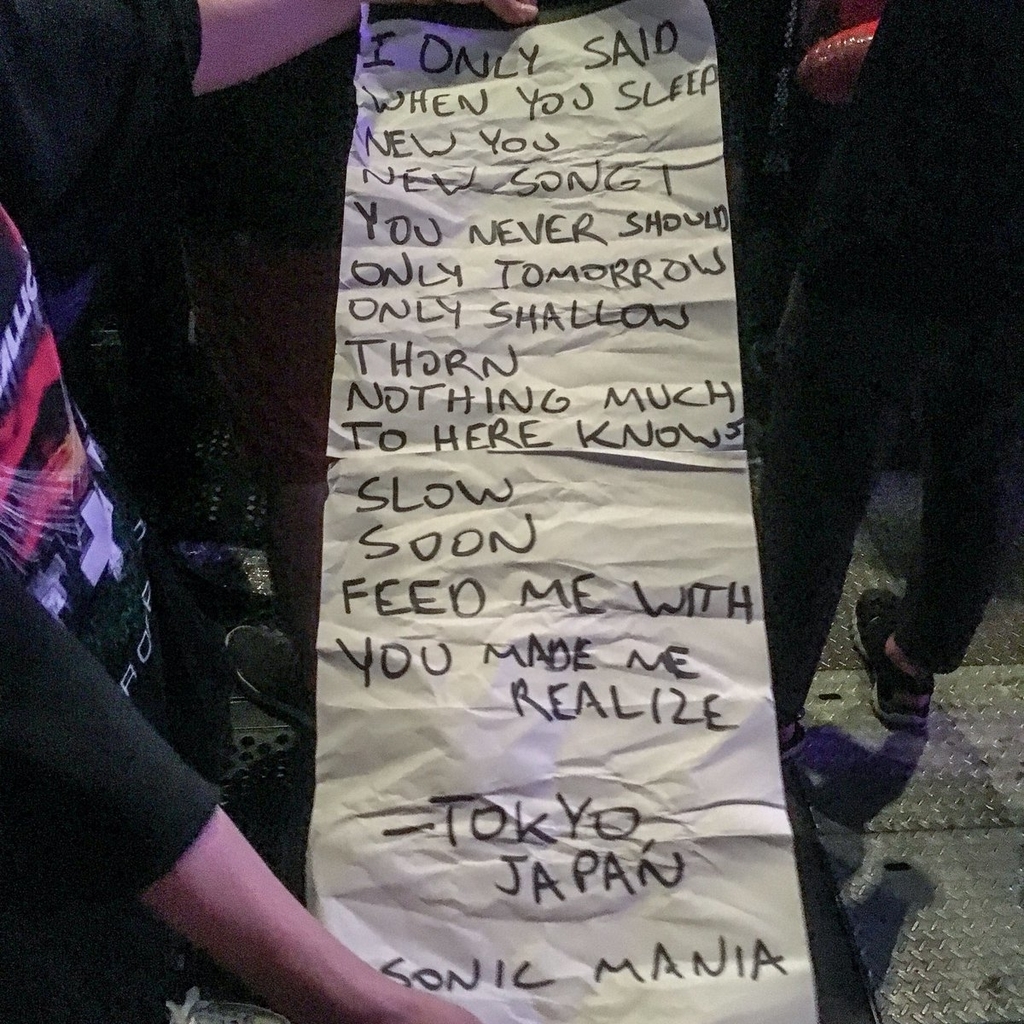 I ONLY SAID
WHEN YOU SLEEP
NEW YOU
NEW SONG 1
YOU NEVER SHOULD
ONLY TOMORROW
ONLY SHALLOW
THORN
NOTHING MUCH
TO HERE KNOWS
SLOW
SOON
FEED ME WITH
YOU MADE ME
REALIZE
-TOKYO,
JAPAN
SONIC MANIA